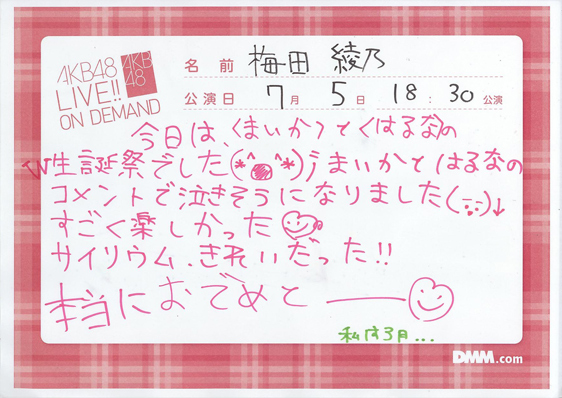 AKB48
LIVE!!
ON DEMAND
AKB
48
名前 梅田 綾乃
公演日 7月 5日 18:30公演
今日は、くまいか>とくはるな>の
W生誕祭でした(*^○^*)ｼまいかとはるなの
コメントで泣きそうになりました(;_;)↓
すごく楽しかった
サイリウム、きれいだった!!
本当におでめと――
私は3月...
DMM.com